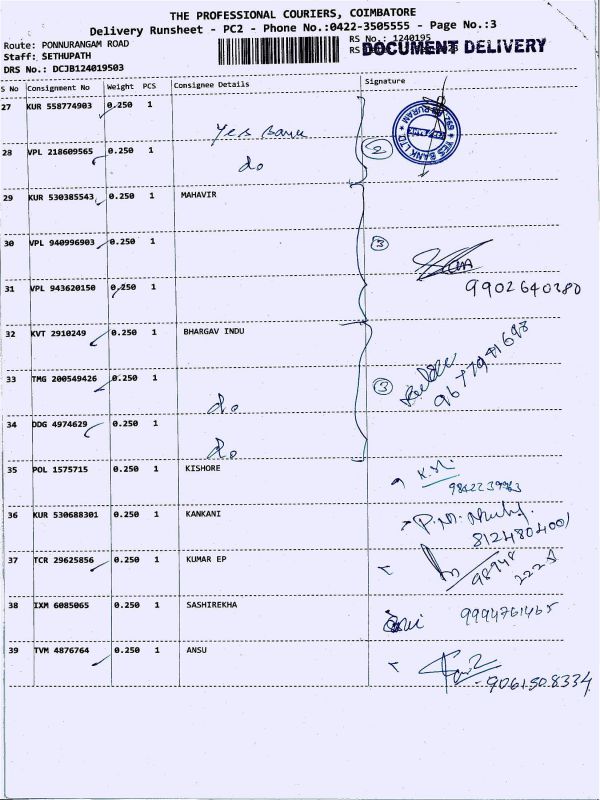 THE PROFESSIONAL COURIERS, COIMBATORE
Delivery Runsheet - PC2 - Phone No.:0422-3505555 - Page No.:3
Route: PONNURANGAM ROAD
RS No.: 1240195
Staff: SETHUPATH
RS DOCUMENT DELIVERY
DRS No.: DCJB124019503
S No Consignment No Weight PCS Consignee Details Signature
27 KUR 558774903 0.250 1 Yes Bank
YES BANK LTD.
28 VPL 218609565 0.250 1 do 2
29 KUR 530385543 0.250 1 MAHAVIR
30 VPL 940996903 0.250 1 3
31 VPL 943620150 0.250 1 9902640280
32 KVT 2910249 0.250 1 BHARGAV INDU
33 TMG 200549426 0.250 1 do 3 9677941698
34 DDG 4974629 0.250 1 do
35 POL 1575715 0.250 1 KISHORE
36 KUR 530688301 0.250 1 KANKANI 8124804001
37 TCR 29625856 0.250 1 KUMAR EP 98948 2225
38 IXM 6085065 0.250 1 SASHIREKHA 9994761465
39 TVM 4876764 0.250 1 ANSU 9061508334